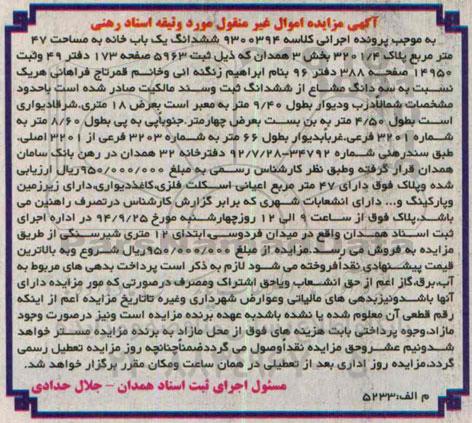 آگهی مزایده اموال غیر منقول مورد وثیقه اسناد رهنی
به موجب پرونده اجرائی کلاسه ۹۳۰۰۳۹۴ ششدانگ یک باب خانه به مساحت ۴۷
متر مربع پلاک ۳۲۰۱/۴ بخش ۳ همدان که ذیل ثبت ۵۹۶۳ صفحه ۱۷۳ دفتر ۴۹ وثبت
۱۴۹۵۰ صفحه ۳۸۸ دفتر ۹۶ بنام ابراهیم زنگنه انی وخانم قمرتاج فراهانی هریک
نسبت به سه دانگ مشاع از ششدانگ ثبت وسند مالکیت صادر شده است باحدود
مشخصات شمالادرب ودیوار بطول ۹/۴۰ متر به معبر است بعرض ۱۸ متری.شرقادیواری
است بطول ۴/۵۰ متر به بن بست بعرض چهارمتر.جنوباپی به پی بطول ۸/۶۰ متر به
شماره ۳۲۰۱ فرعی.غربابدیوار بطول ۶۶ متر به شماره ۳۲۰۳ فرعی از ۳۲۰۱ اصلی.
طبق سندرهنی شماره ۳۴۷۹۲-۹۲/۷/۲۸ دفترخانه ۳۲ همدان در رهن بانک سامان
همدان قرار گرفته وطبق نظر کارشناس رسمی به مبلغ ۹۵۰/۰۰۰/۰۰۰ریال ارزیابی
شده وپلاک فوق دارای ۴۷ متر مربع اعیانی اسکلت فلزی،کاغذدیواری،دارای زیرزمین
وپارکینگ و... دارای انشعابات شهری که برابر گزارش کارشناس درتصرف راهنین می
باشد.پلاک فوق از ساعت ۹ الی ۱۲ روزچهارشنبه مورخ ۹۴/۹/۲۵ در اداره اجرای
ثبت اسناد همدان واقع در میدان فردوسی.ابتدای ۱۲ متری شیرسنگی از طریق
مزایده به فروش می رسد.مزایده از مبلغ ۹۵۰/۰۰۰/۰۰۰ریال شروع وبه بالاترین
قیمت پیشنهادی نقدافروخته می شود لازم به ذکر است پرداخت بدهی های مربوط به
آب،برق،گاز اعم از حق انشعاب ویاحق اشتراک ومصرف درصورتی که مور مزایده دارای
آنها باشدونیزبدهی های مالیاتی وعوارض شهرداری وغیره تاتاریخ مزایده اعم از اینکه
رقم قطعی آن معلوم شده یا نشده باشدبه عهده برنده مزایده است ونیز درصورت وجود
مازاد،وجوه پرداختی بابت هزینه های فوق از محل مازاد به برنده مزایده مستر خواهد
شدونیم عشروحق مزایده نقداوصول می گرددضمناچنانچه روز مزایده تعطیل رسمی
گردد.مزایده روز اداری بعد از تعطیلی در همان ساعت ومکان مقرر برگزار خواهد شد.
مسئول اجرای ثبت اسناد همدان - جلال حدادی
م الف:۵۲۳۳